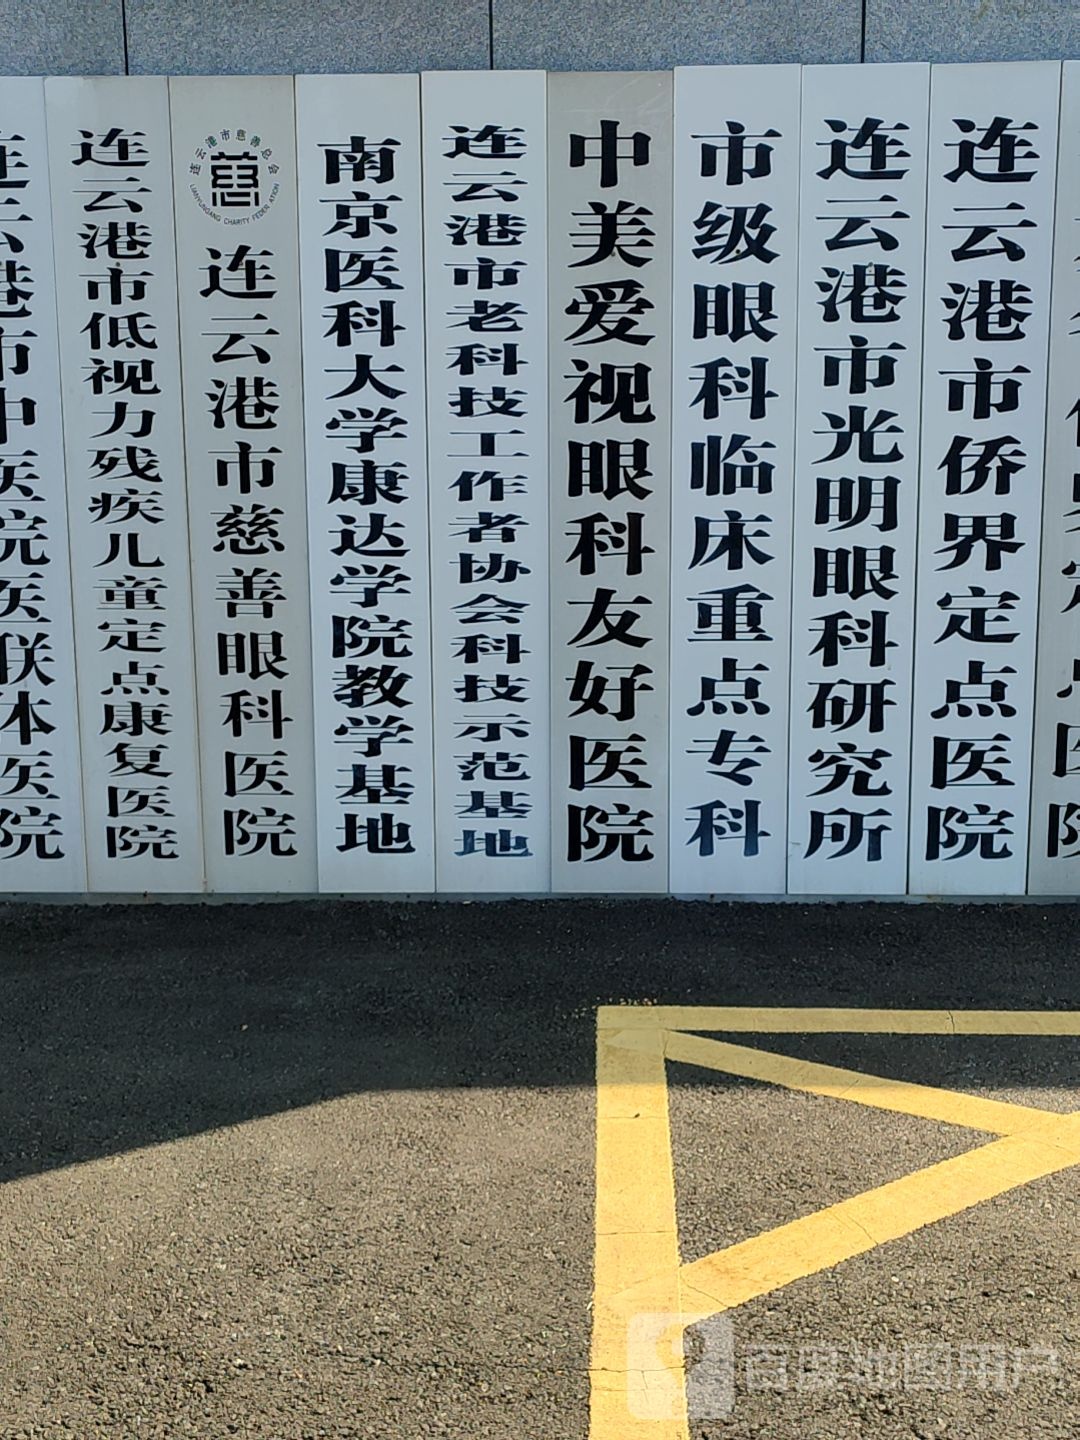 连云港市中医院医联体医院
连云港市低视力残疾儿童定点康复医院
连云港市慈善总会
LIANYUNGANG CHARITY FEDERATION
连云港市慈善眼科医院
南京医科大学康达学院教学基地
连云港市老科技工作者协会科技示范基地
中美爱视眼科友好医院
市级眼科临床重点专科
连云港市光明眼科研究所
连云港市侨界定点医院
百度地图用户